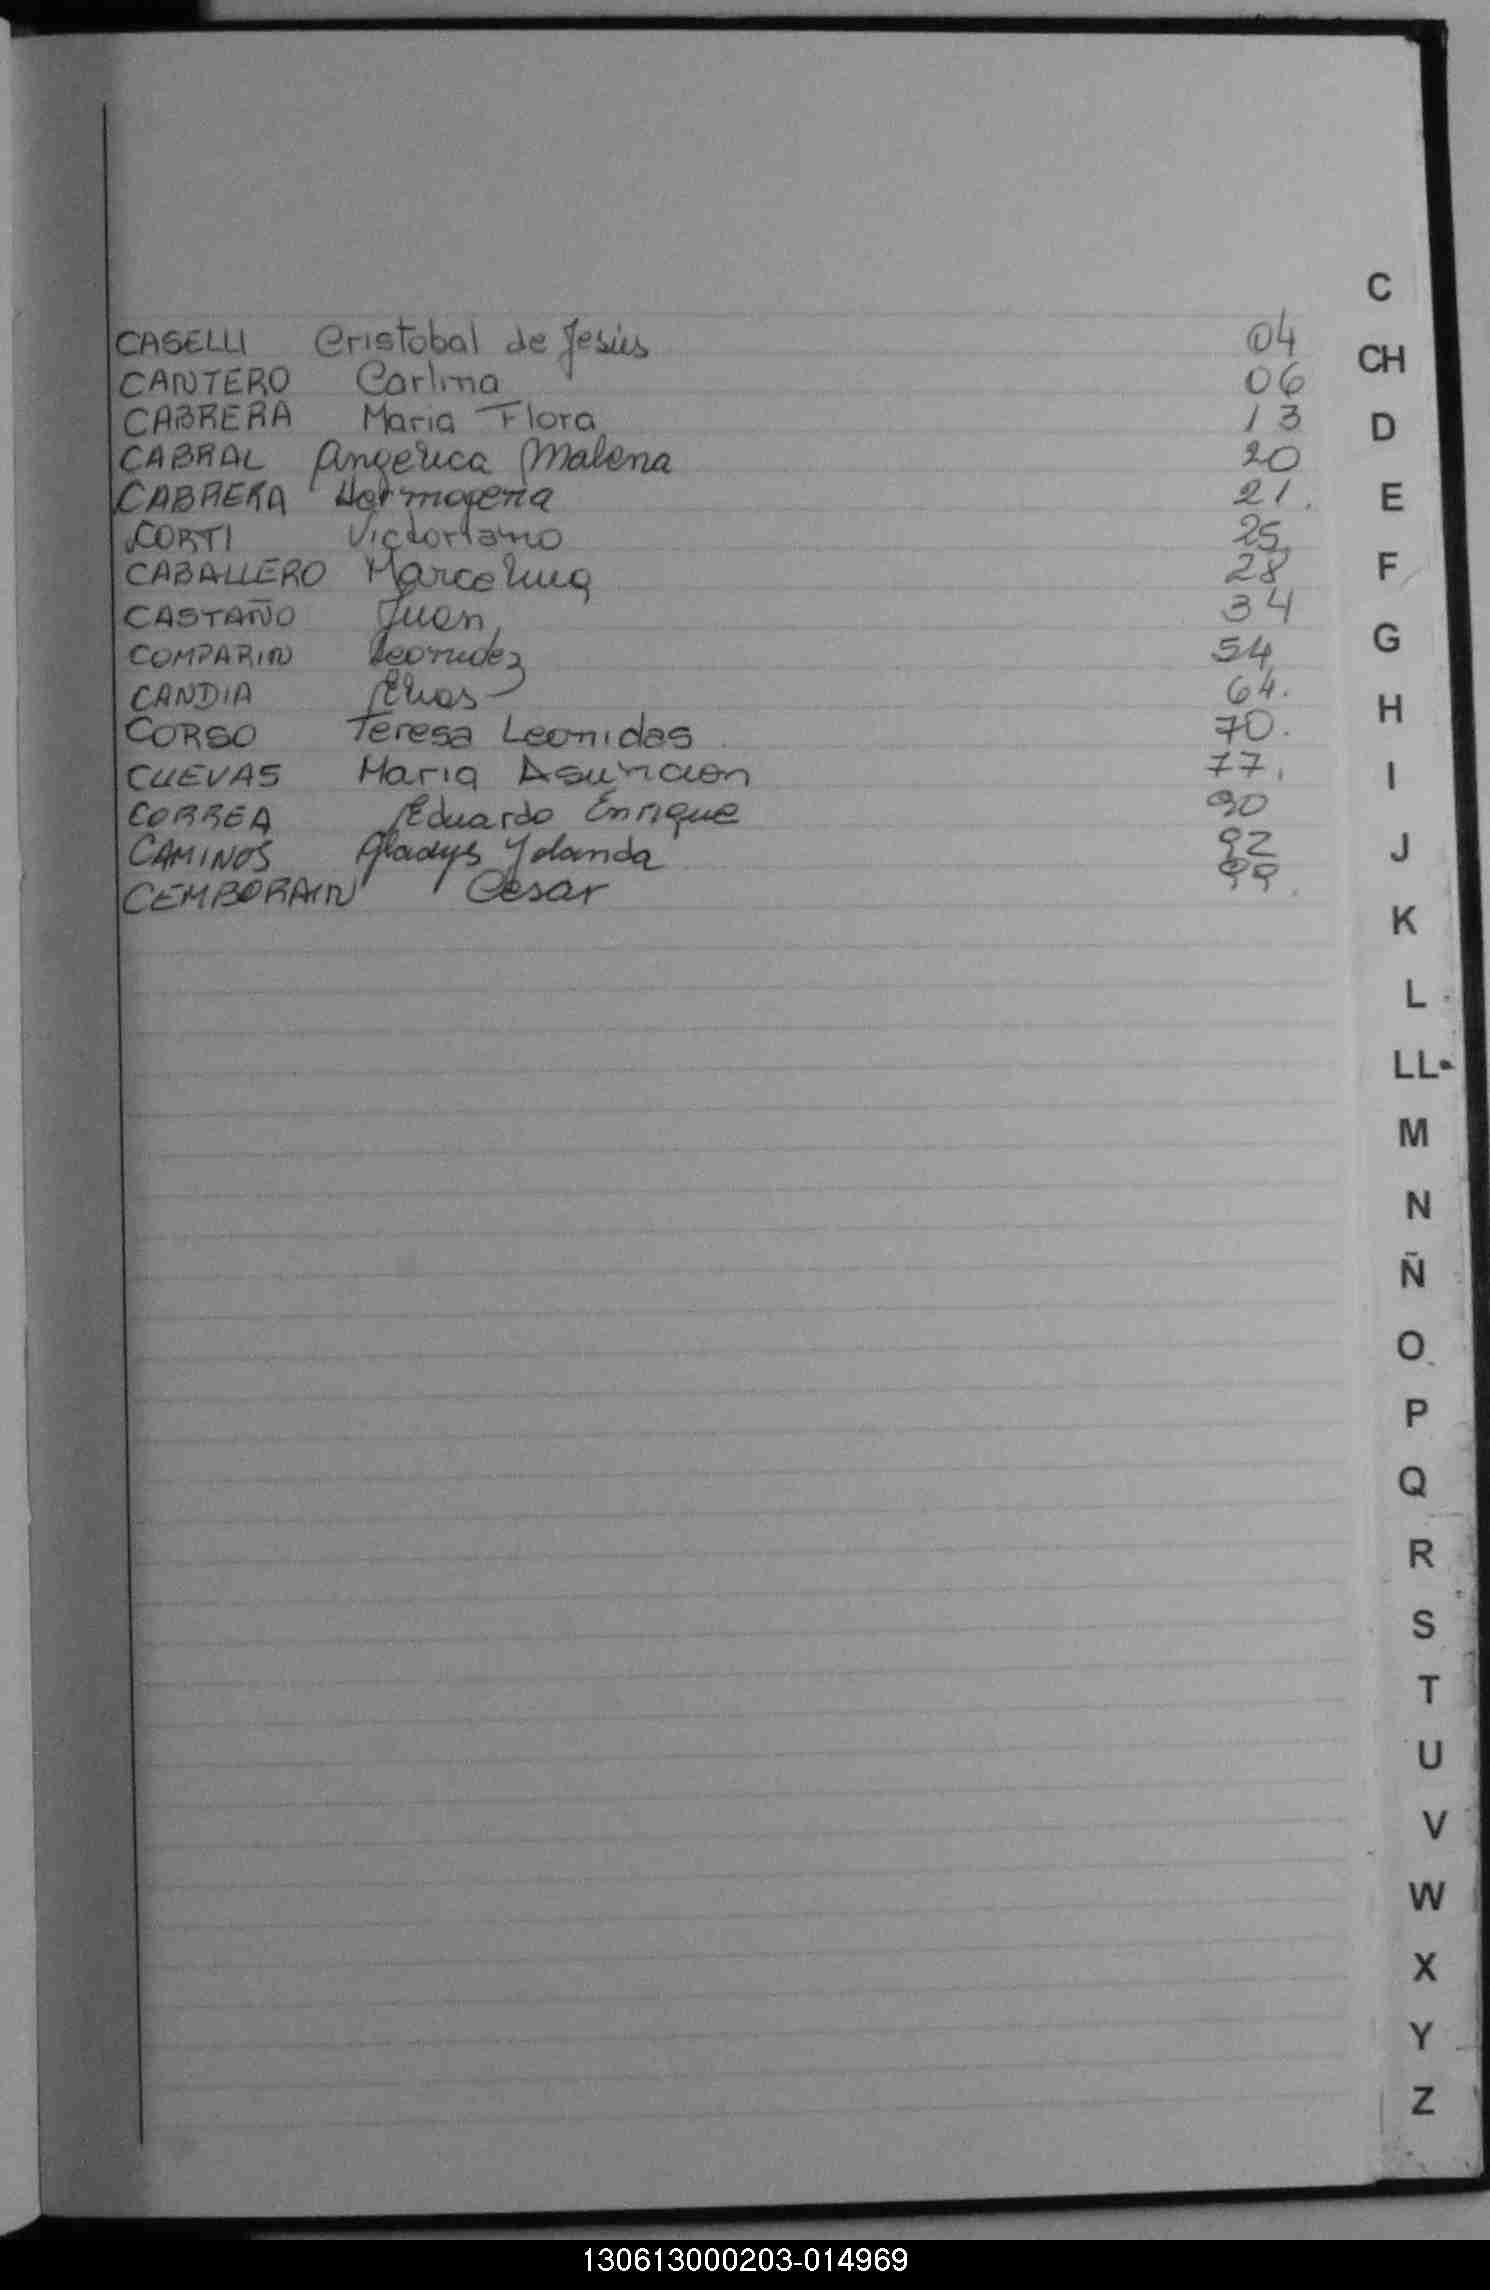 C
CASELLI Cristobal de Jesús 04
CH
CANTERO Carlina 06
CABRERA Maria Flora 13
D
CABRAL Angelica Malena 20
CABRERA Hermogena 21.
E
CORTI Victoriano 25
CABALLERO Marcelina 28
F
CASTAÑO Juan 34
G
COMPARIN Leonidez 54
CANDIA Elias 64.
H
CORSO Teresa Leonidas 70.
CUEVAS Maria Asuncion 77.
I
CORREA Eduardo Enrique 90
CAMINOS Gladys Yolanda 92
J
CEMBORAIN Cesar 99.
K
L
LL
M
N
Ñ
O
P
Q
R
S
T
U
V
W
X
Y
Z
130613000203-014969